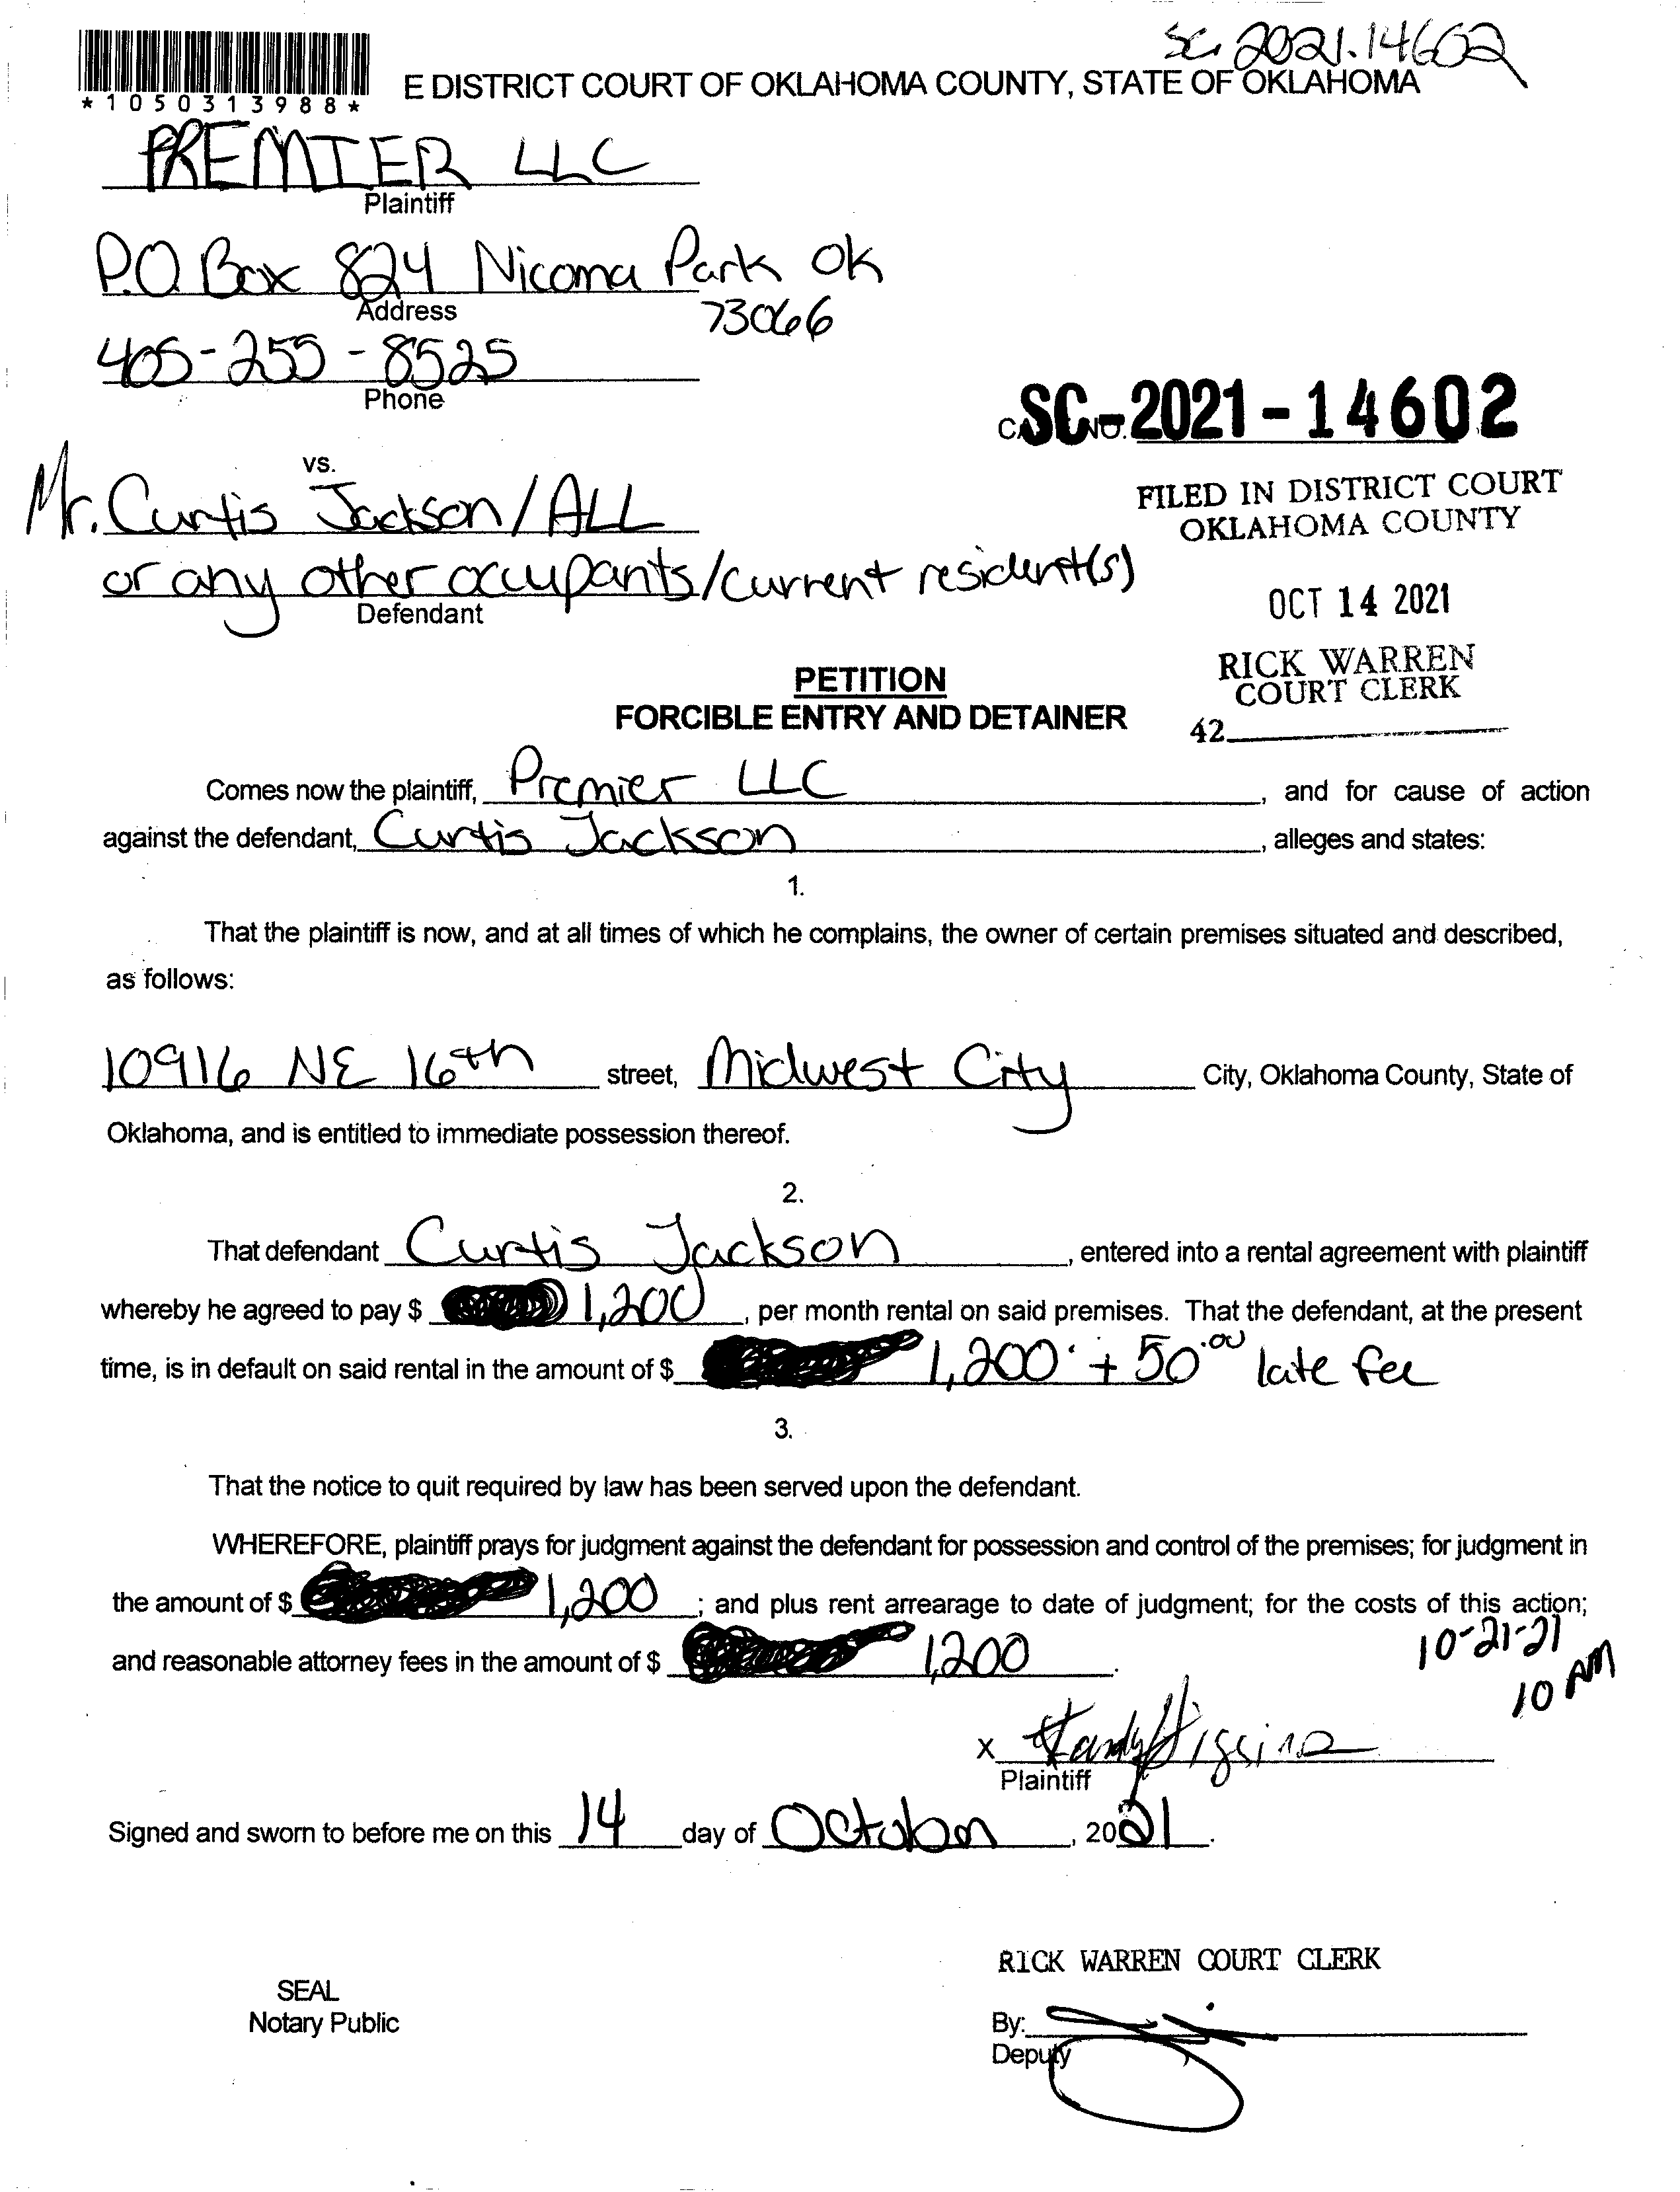 SC. 2021.14602
*1050313988*
E DISTRICT COURT OF OKLAHOMA COUNTY, STATE OF OKLAHOMA
PREMIER LLC
Plaintiff
P.O. Box 824 Nicoma Park OK
Address
73066
405-255-8525
Phone
SC-2021-14602
vs.
Mr. Curtis Jackson/ALL
or any other occupants/current resident(s)
Defendant
FILED IN DISTRICT COURT
OKLAHOMA COUNTY
OCT 14 2021
RICK WARREN
COURT CLERK
42
PETITION
FORCIBLE ENTRY AND DETAINER
Comes now the plaintiff, Premier LLC, and for cause of action
against the defendant, Curtis Jackson, alleges and states:
1.
That the plaintiff is now, and at all times of which he complains, the owner of certain premises situated and described,
as follows:
10916 NE 16th street, Midwest City City, Oklahoma County, State of
Oklahoma, and is entitled to immediate possession thereof.
2.
That defendant Curtis Jackson, entered into a rental agreement with plaintiff
whereby he agreed to pay $ 1,200, per month rental on said premises. That the defendant, at the present
time, is in default on said rental in the amount of $ 1,200 + 50.00 late fee
3.
That the notice to quit required by law has been served upon the defendant.
WHEREFORE, plaintiff prays for judgment against the defendant for possession and control of the premises; for judgment in
the amount of $ 1,200; and plus rent arrearage to date of judgment; for the costs of this action;
and reasonable attorney fees in the amount of $ 1,200.
10-21-21
10 AM
X
Plaintiff
Signed and sworn to before me on this 14 day of October, 2021.
RICK WARREN COURT CLERK
SEAL
Notary Public
By:
Deputy